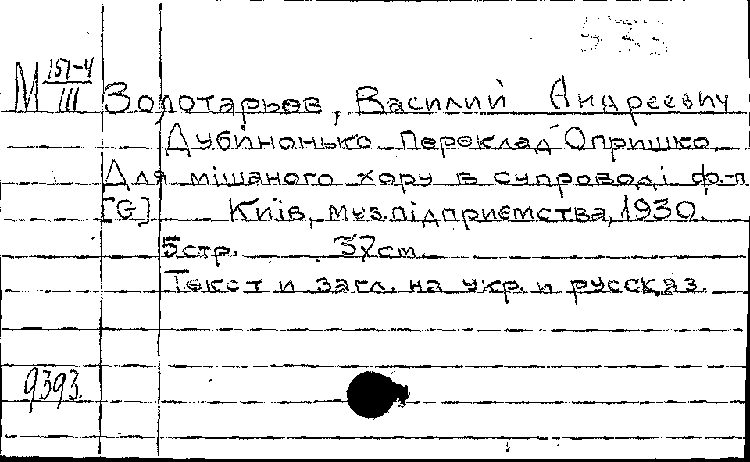 535
М 151-4/III Золотарьов, Василий Андреевич
Дубинонько. Переклад Опришко
Для мішаного хору в супроводі ф-п
[G] Київ, муз.підприємства, 1930.
5 стр. 37 cm.
Текст и загл. на укр. и русск.яз.
9393